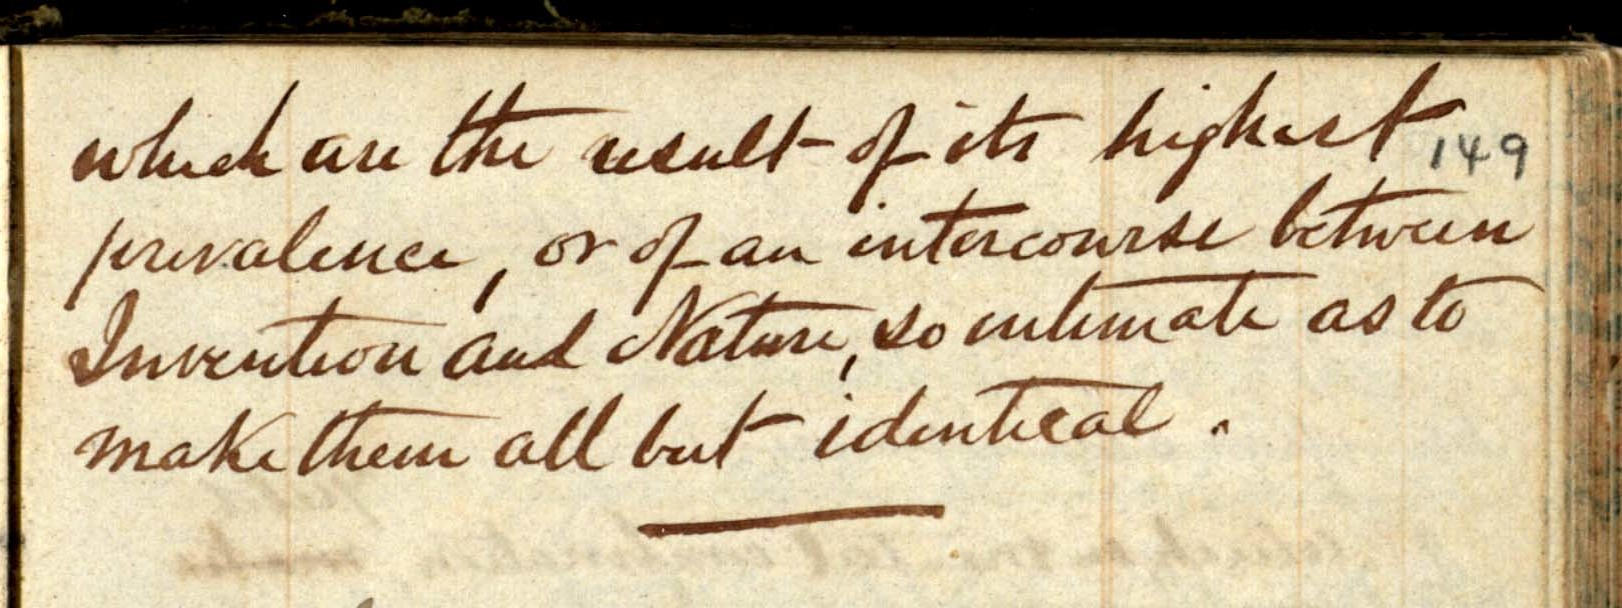 which are the result of its highest 149
prevalence, or of an intercourse between
Invention and Nature, so intimate as to
make them all but identical.